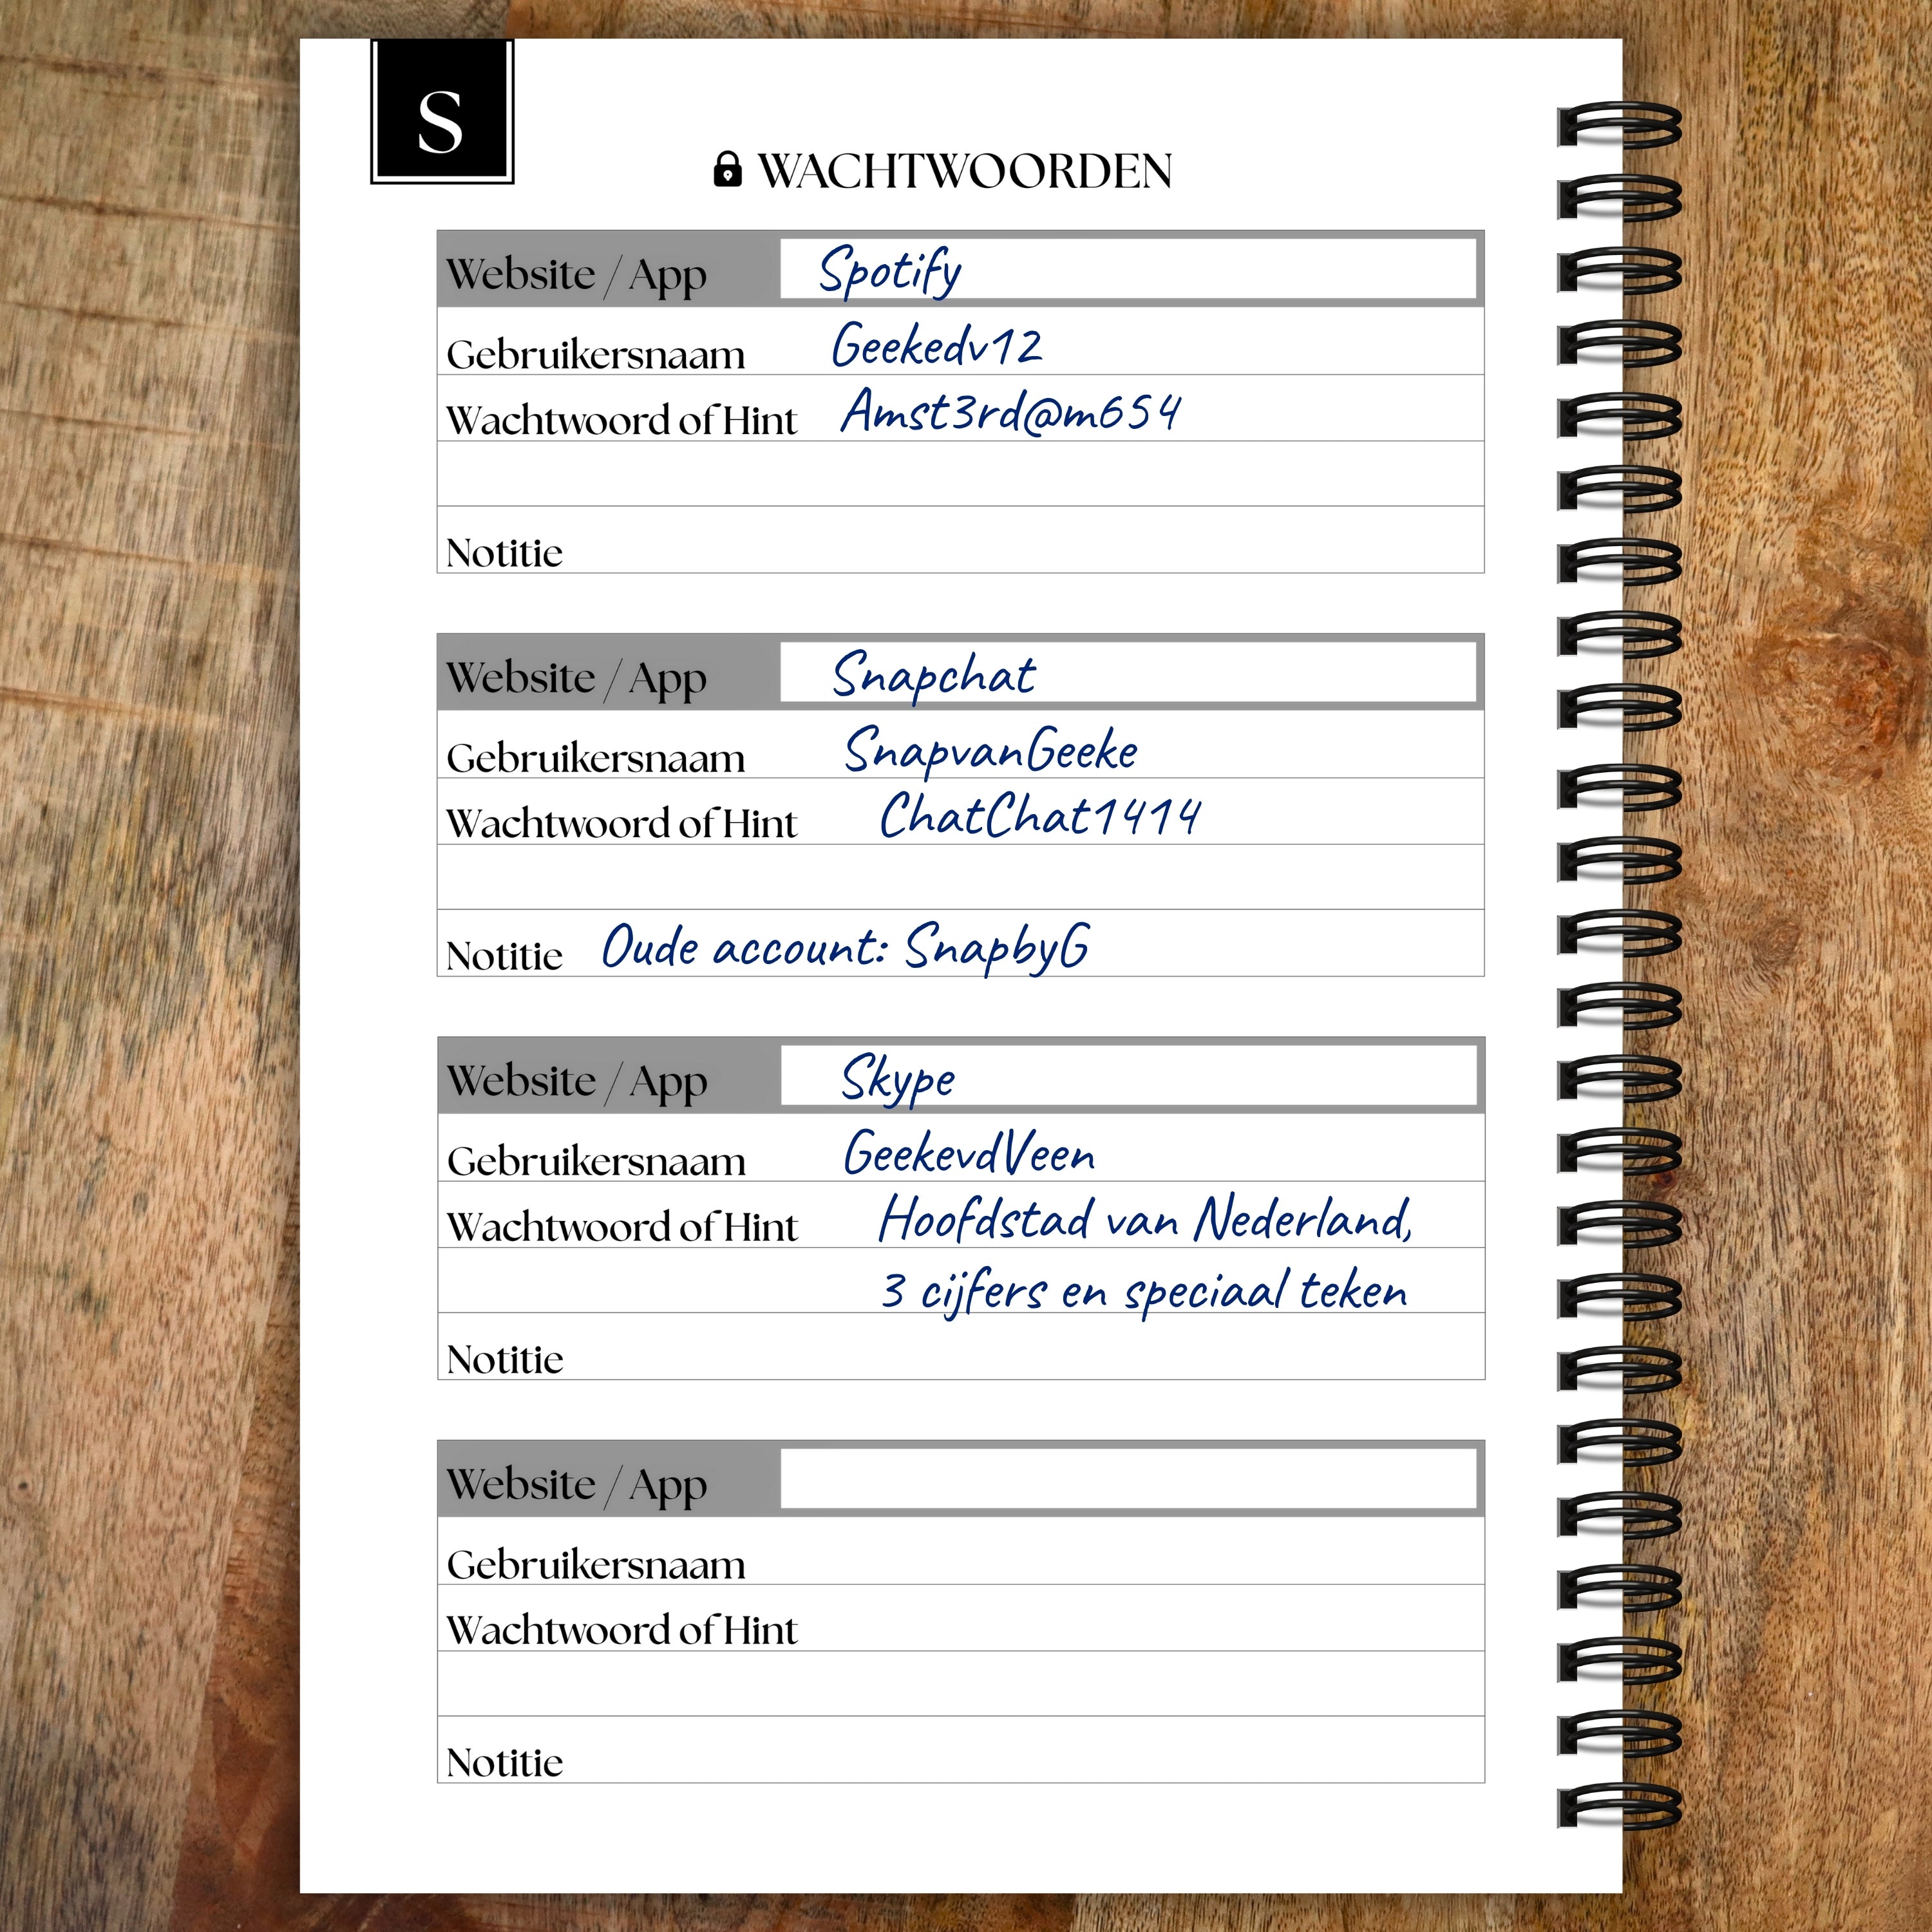 S
WACHTWOORDEN
Website / App Spotify
Gebruikersnaam Geekedv12
Wachtwoord of Hint Amst3rd@m654
Notitie
Website / App Snapchat
Gebruikersnaam SnapvanGeeke
Wachtwoord of Hint ChatChat1414
Notitie Oude account: SnapbyG
Website / App Skype
Gebruikersnaam GeekevdVeen
Wachtwoord of Hint Hoofdstad van Nederland,
3 cijfers en speciaal teken
Notitie
Website / App
Gebruikersnaam
Wachtwoord of Hint
Notitie